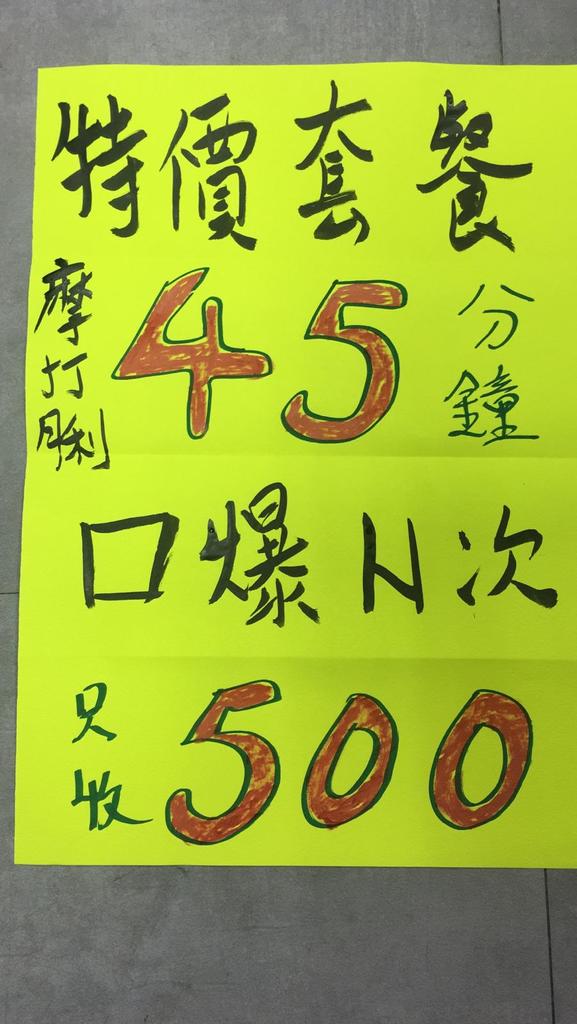 特價套餐
摩打脷
45分鐘
口爆N次
只收500